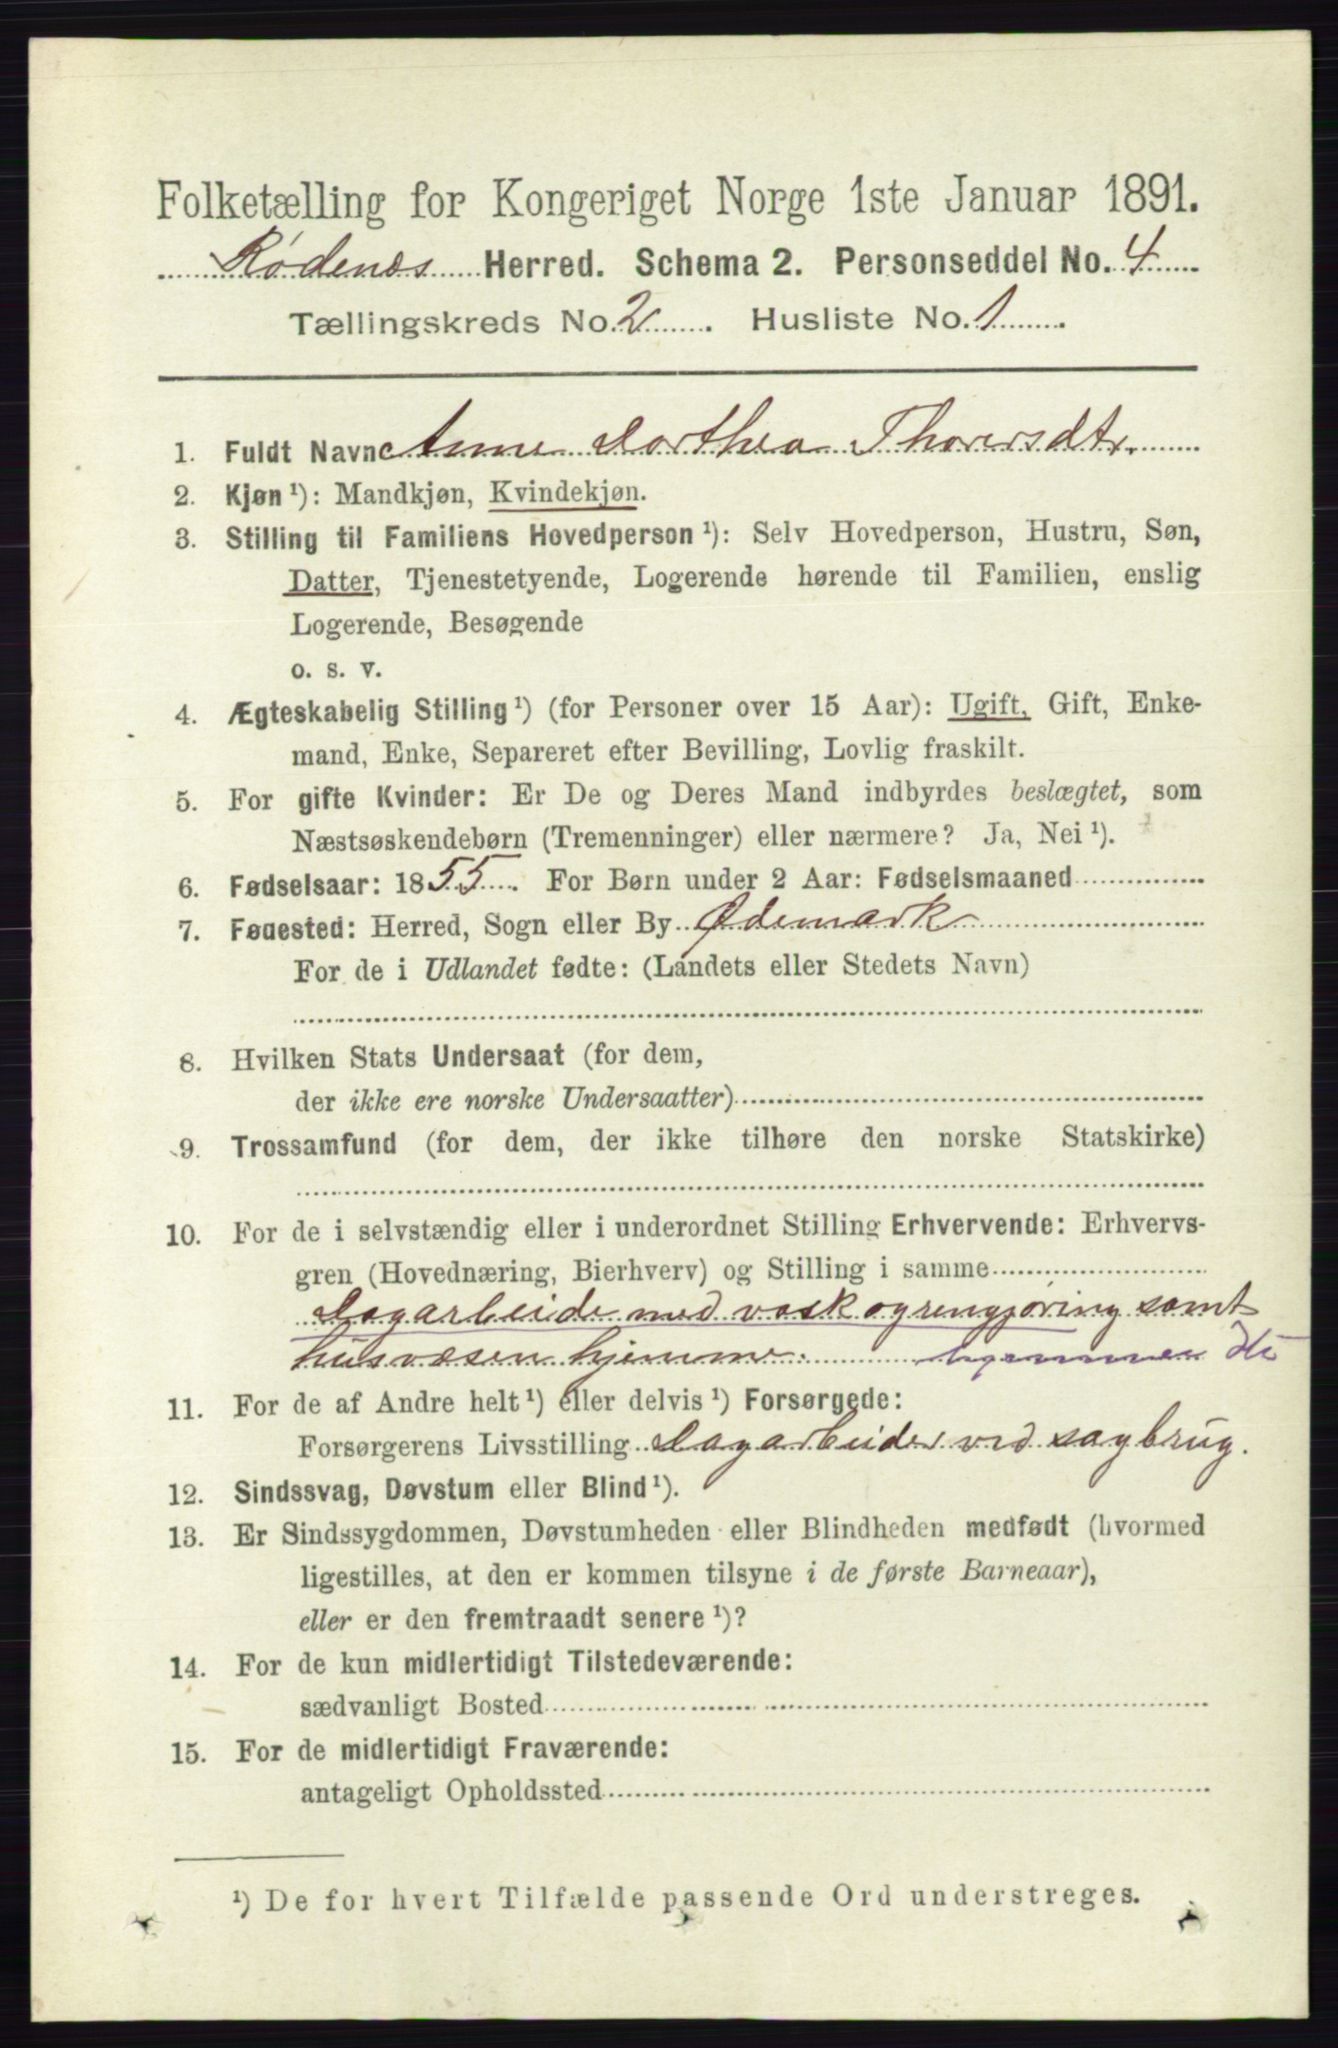 Folketælling for Kongeriget Norge 1ste Januar 1891.
Rødenæs Herred. Schema 2. Personseddel No. 4
Tællingskreds No. 2 Husliste No. 1
1. Fuldt Navn Anne Dorthea Thoresdtr.
2. Kjøn ¹): Mandkjøn, Kvindekjøn.
3. Stilling til Familiens Hovedperson ¹): Selv Hovedperson, Hustru, Søn,
Datter, Tjenestetyende, Logerende hørende til Familien, enslig
Logerende, Besøgende
o. s. v.
4. Ægteskabelig Stilling ¹) (for Personer over 15 Aar): Ugift, Gift, Enke-
mand, Enke, Separeret efter Bevilling, Lovlig fraskilt.
5. For gifte Kvinder: Er De og Deres Mand indbyrdes beslægtet, som
Næstsøskendebørn (Tremenninger) eller nærmere? Ja, Nei ¹).
6. Fødselsaar: 1855. For Børn under 2 Aar: Fødselsmaaned
7. Fødested: Herred, Sogn eller By Ødemark
For de i Udlandet fødte: (Landets eller Stedets Navn)
8. Hvilken Stats Undersaat (for dem,
der ikke ere norske Undersaatter)
9. Trossamfund (for dem, der ikke tilhøre den norske Statskirke)
10. For de i selvstændig eller i underordnet Stilling Erhvervende: Erhvervs-
gren (Hovednæring, Bierhverv) og Stilling i samme
Dagarbeide med vask og rengjøring samt
husvæsen hjemme.
11. For de af Andre helt ¹) eller delvis ¹) Forsørgede:
Forsørgerens Livsstilling Dagarbeider ved sagbrug.
12. Sindssvag, Døvstum eller Blind ¹).
13. Er Sindssygdommen, Døvstumheden eller Blindheden medfødt (hvormed
ligestilles, at den er kommen tilsyne i de første Barneaar),
eller er den fremtraadt senere ¹)?
14. For de kun midlertidigt Tilstedeværende:
sædvanligt Bosted
15. For de midlertidigt Fraværende:
antageligt Opholdssted
¹) De for hvert Tilfælde passende Ord understreges.